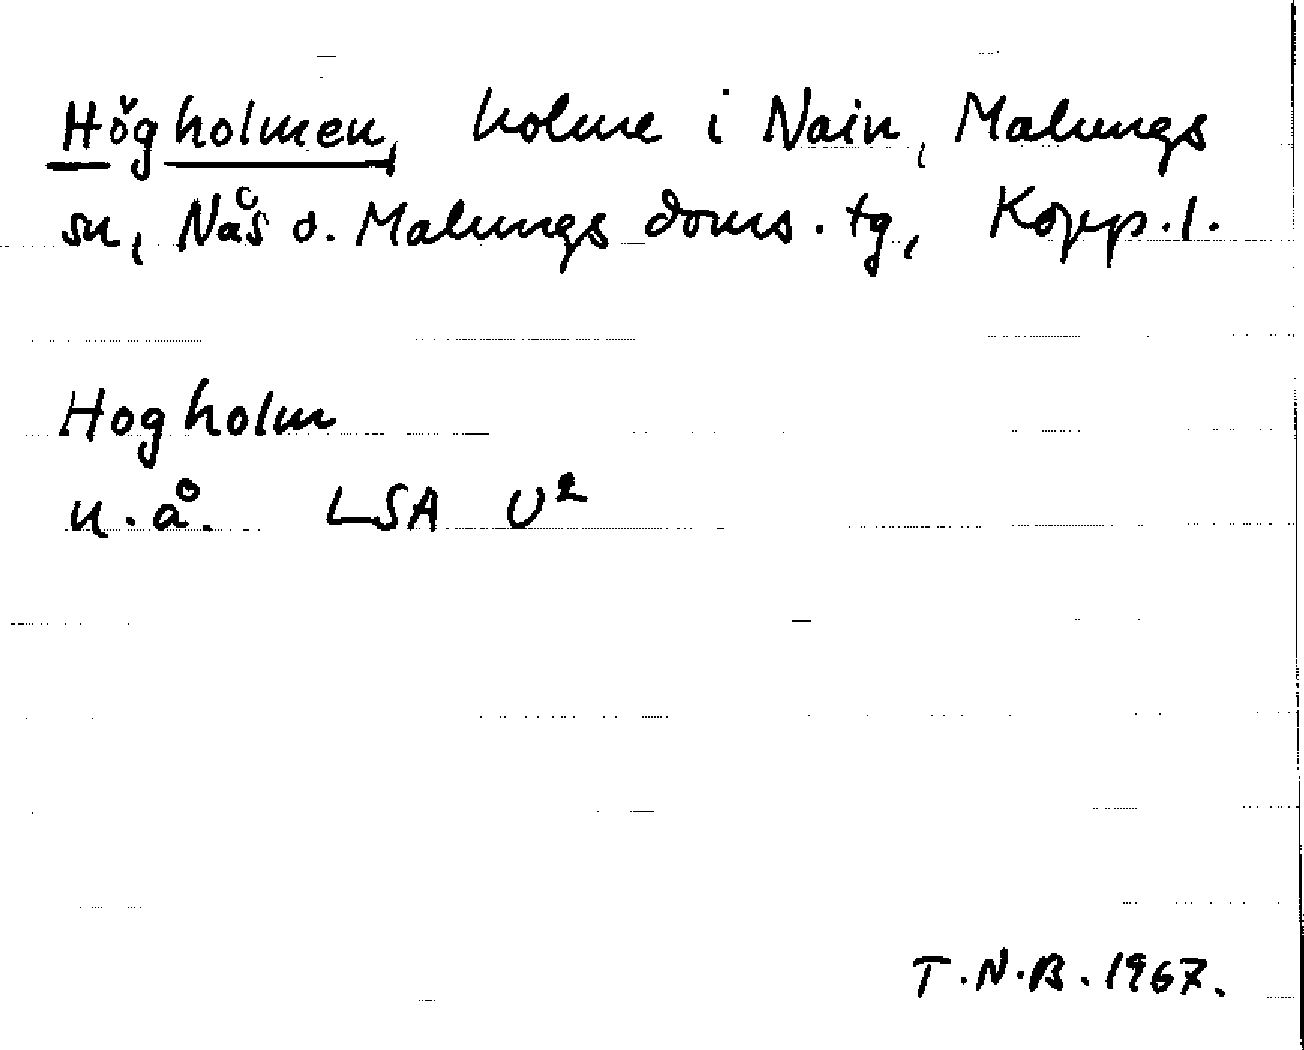 Högholmen, holme i Nain, Malungs
sn, Nås o. Malungs doms. tg, Kopp. l.
Hogholm
u. å. LSA U²
T.N.B. 1967.